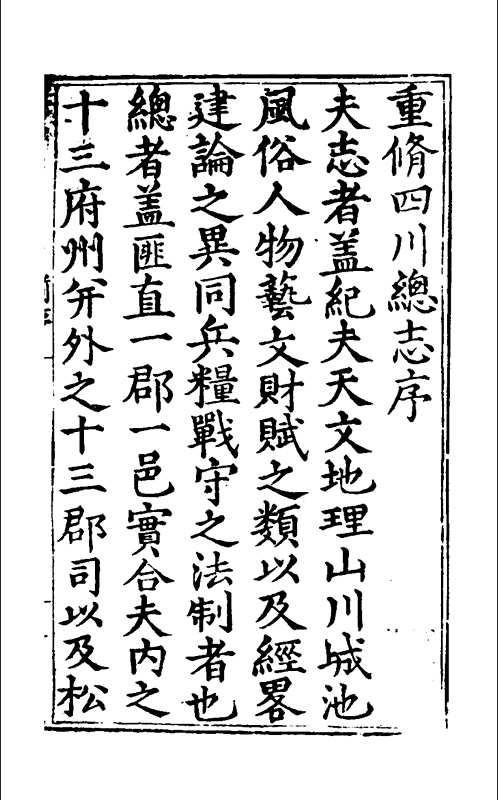 重脩四川總志序
夫志者盖紀夫天文地理山川城池
風俗人物藝文財賦之類以及經畧
建論之異同兵糧戰守之法制者也
總者盖匪直一郡一邑實合夫内之
十三府州并外之十三郡司以及松